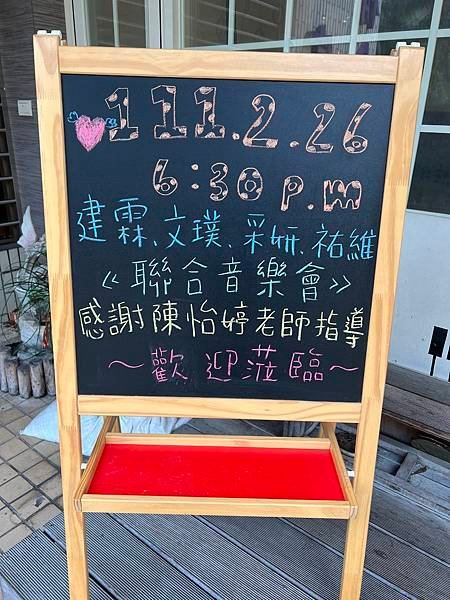 111.2.26
6:30 p.m
建霖、文璞、采妍、祐維
《聯合音樂會》
感謝陳怡婷老師指導
～歡迎蒞臨～